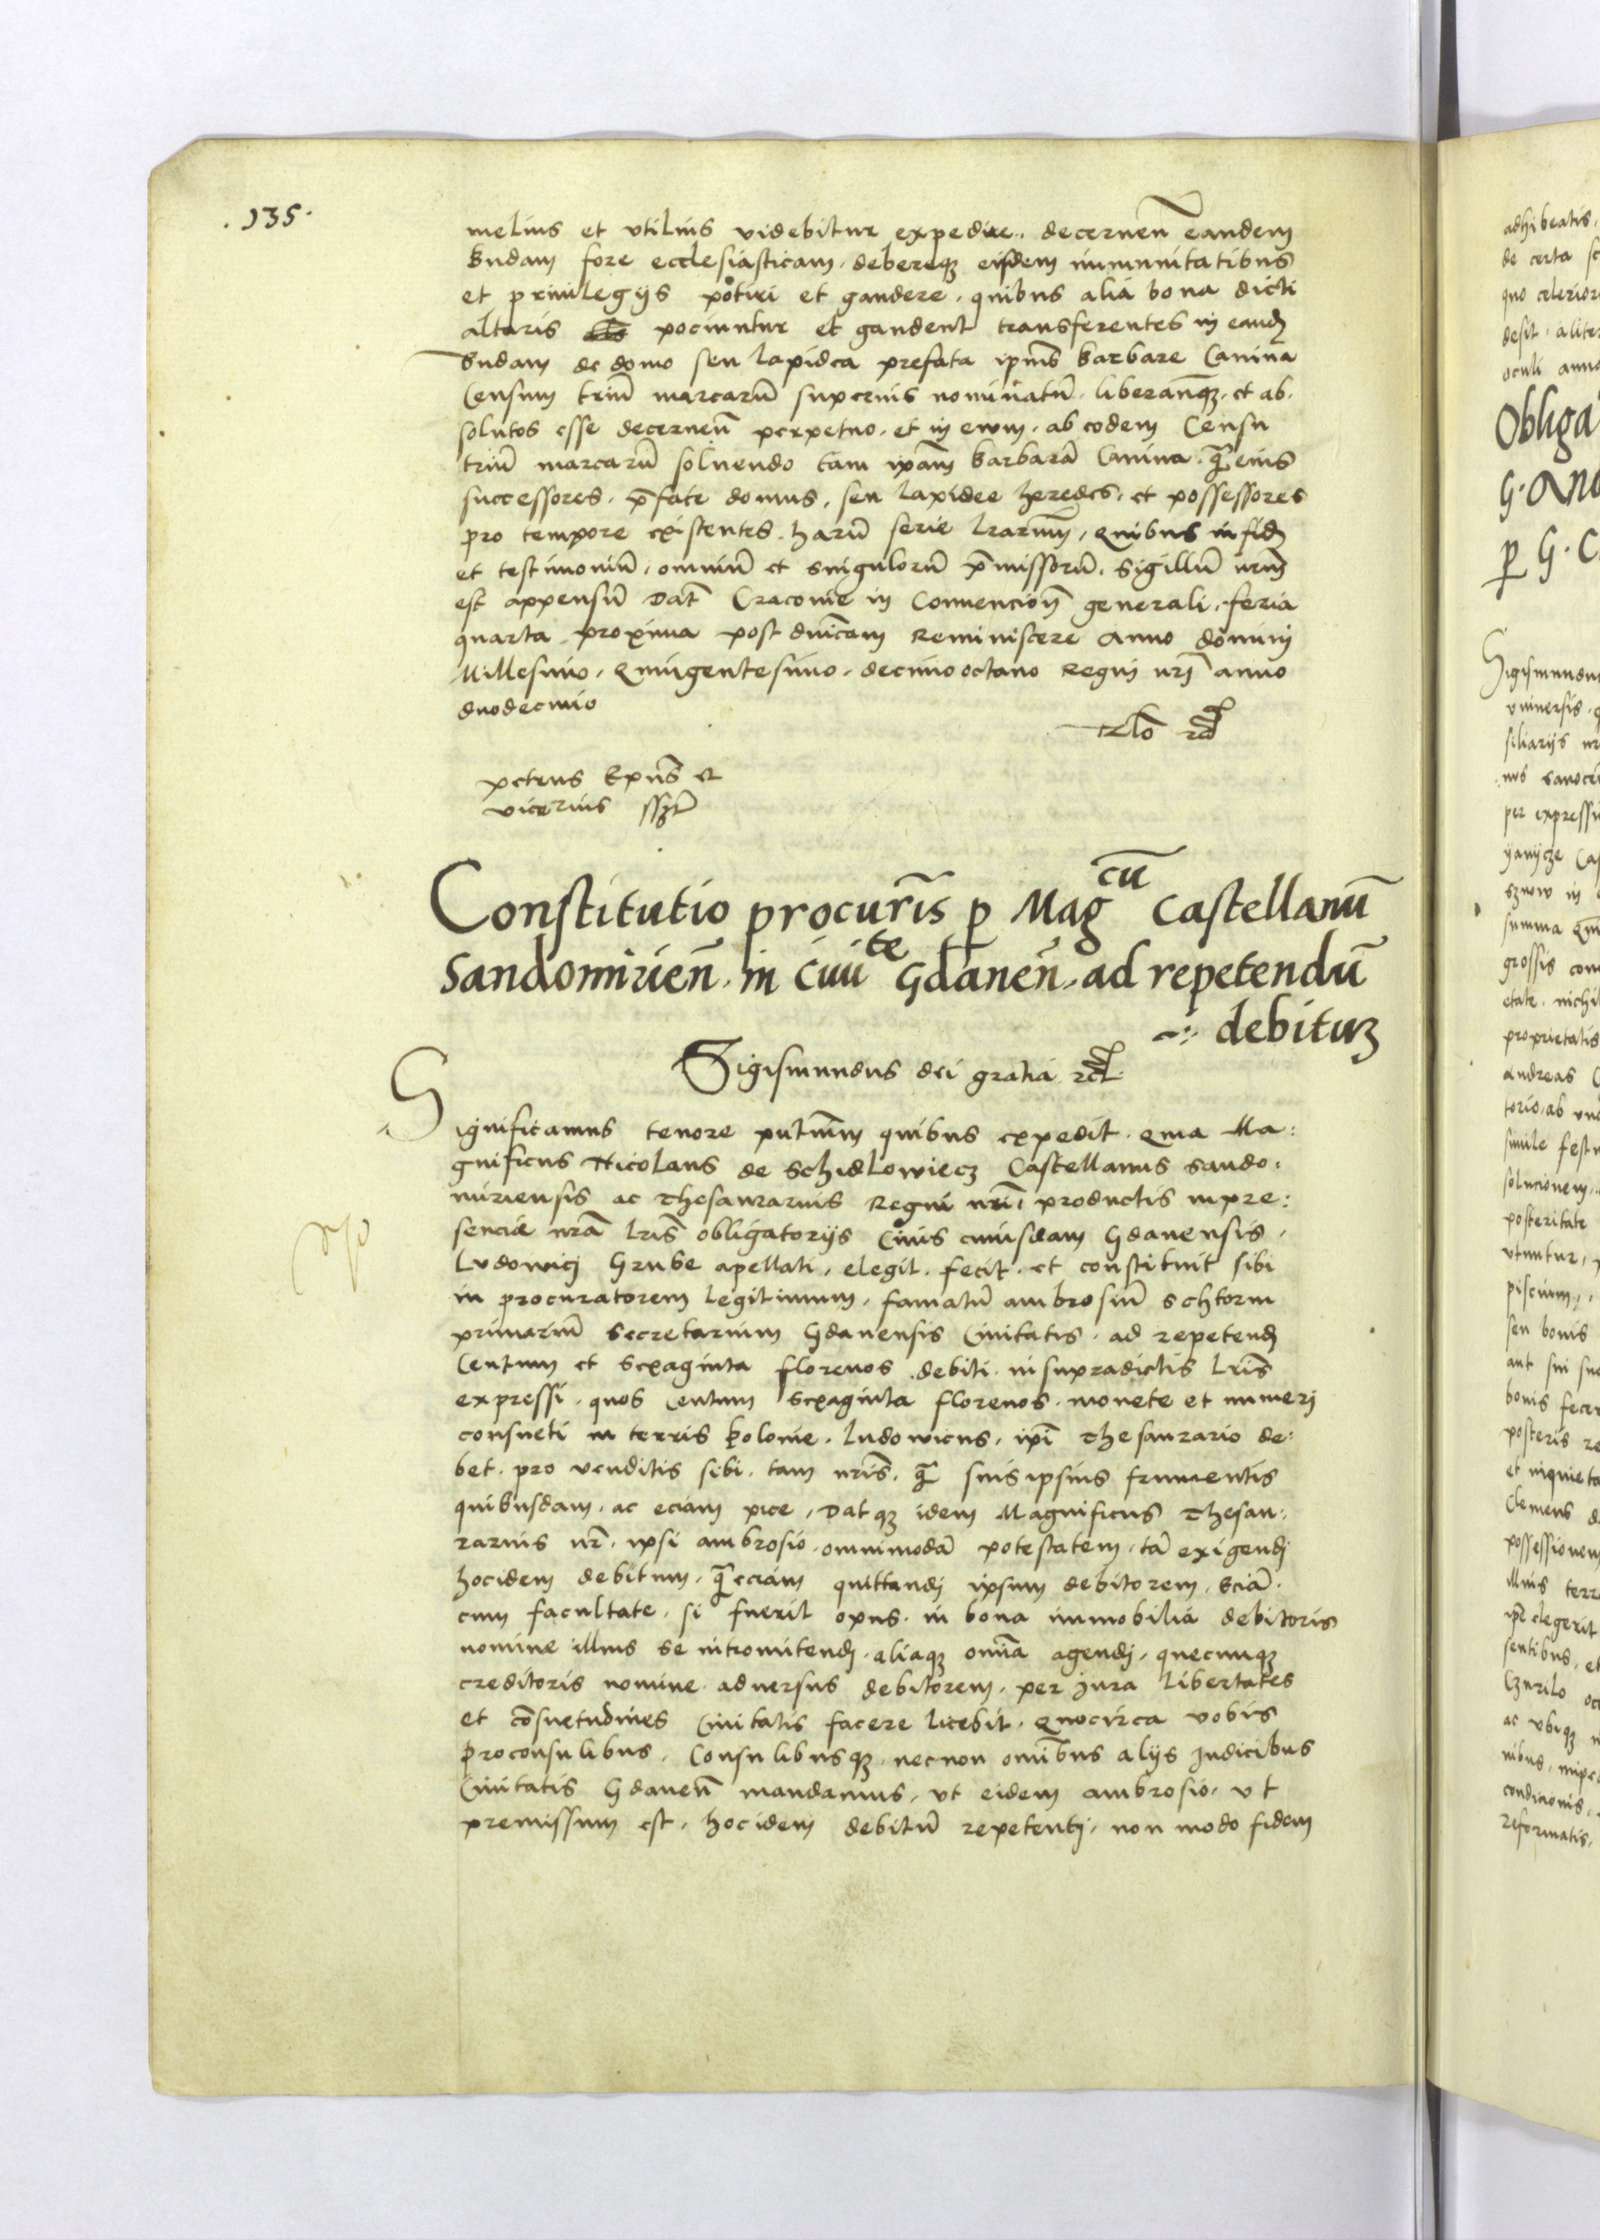 .135.
melius et vtilius videbitur expedire. decernen̄ eandem
budam fore ecclesiasticam. debereqꝫ eisdem immunitatibus
et priuilegijs potiri et gaudere. quibus alia bona dicti
altaris pociuntur et gaudent transferentes in eand
budam de domo seu lapidea prefata ipius barbare Canina
Censum triū marcarū superius nominatū. liberamqꝫ. et ab.
solutos esse decernen̄ perpetuo. et in ewm. ab eodem Censu
triū marcarū soluendo tam ipam barbarā Canina. q̄ eius
successores. p̄fate domus. seu lapidee heredes. et possessores
pro tempore existentes. harū serie lrarum. Quibus in fid
et testimoniū. omniū et singulorū p̄missorū. sigillū nrm̄
est appensū Dat̄ Cracouie in Conuencion̄ generali. feria
quarta proxima post dnicam Reminiscere Anno domini
Millesimo. Quingentesimo. decimooctauo Regni nrj̄ anno
duodecimo
Rlō
petrus Epūs et
vicecancellarius sszt
Constitutio procur̄is p Magcū Castellanū
Sandomirien̄. in Ciuite Gdanen̄. ad repetendū
debitum
Sigismundus dei gratia rcl
Significamus tenore pntium quibus expedit. Quia Ma:
gnificus Nicolaus de Schidlowiecz Castellanus Sando:
miriensis ac Thesaurarius Regni nri. productis in pre:
sencia nrā lris̄ obligatorijs Ciuis cuiusdam Gdanensis.
Ludowicj Grube apellati. elegit. fecit. et constituit sibi
in procuratorem legitimum. famatū ambrosiū Schtorm
primariū Secretarium Gdanensis Ciuitatis. ad repetend
Centum et sexaginta florenos. debiti. in supradictis lris̄
expressi. quos Centum sexaginta florenos. monete et numerj
consueti in terris Polonie. Ludowicus. ipī Thesaurario de:
bet. pro venditis sibi. tam nris̄. q̄ suis ipsius frumentis
quibusdam. ac eciam pice. Dat qꝫ idem Magnificus Thesau:
rarius nr̄. ipsi ambrosio. omnimodā potestatem. tā exigendj
hocidem debitum. q̄ eciam quittandj ipsum debitorem. Eciā.
cum facultate. si fuerit opus. in bona immobilia debitoris
nomine illius se intromittendj. aliaqꝫ omīa agendj. quecunqꝫ
creditoris nomine. aduersus debitorem. per jura libertates
et cōsuetudines Ciuitatis facere licebit. Quocirca vobis
proconsulibus. Consulibusqꝫ. necnon omībus alijs Judicibus
Ciuitatis Gdanen̄ mandamus. vt eidem ambrosio. vt
premissum est. hocidem debitū repetentj. non modo fidem
adhibeatis.
de certa
quo celerior
desit. alite
oculi
Obliga
G. And
p G. C
Sigismundu
vniuersis.
siliarijs
per expressu
summa
grossis
etate. nichil
proprietatis
andreas
torio. ab
simile
solucionem
posteritate
vtuntur.
piscium
seu bonis
aut
bonis
posteris
et inquieta
Clemens
possessionem
illius terr
elegerit
sentibus. et
ac vbiqꝫ
condicionis.
reformatis.